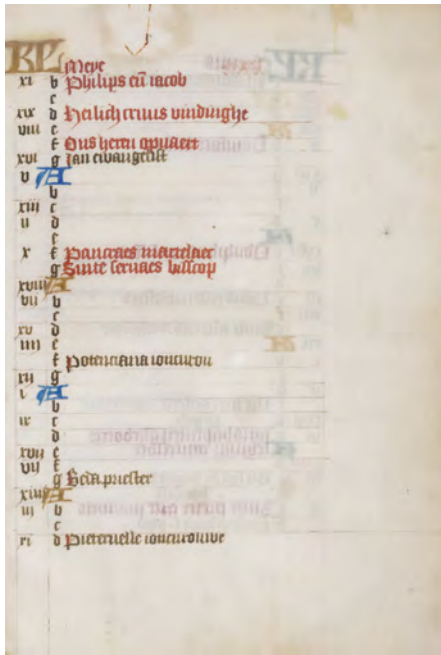 KL Meye
xi b Philips eñ iacob
c
xix d Heilich cruus vindinghe
viii e
f Ons heren opuaert
xvi g Jan ewangelist
v A
b
xiii c
ii d
e
x f Pancraes martelaer
g Sinte seruaes bisscop
xviii A
vii b
c
xv d
iiii e
f Potenciana ioncurou
xii g
i A
b
ix c
d
xvii e
f
g Beda priester
xiiii A
iii b
c
xi d Pieternelle ioncurouwe